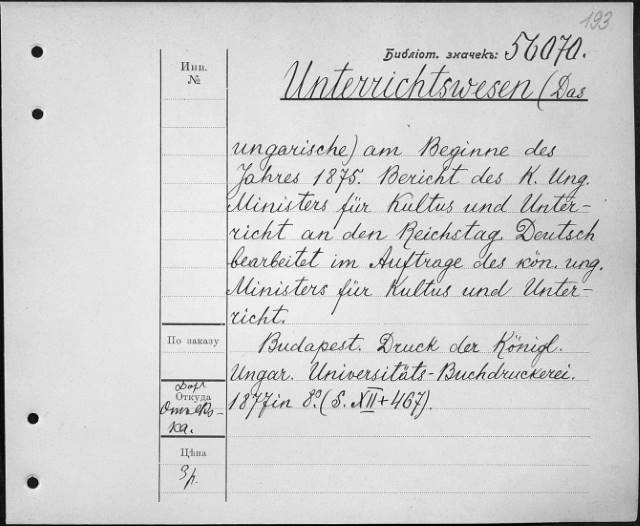 193
Библіот. значекъ: 56070.
Инв.
№
Unterrichtswesen (Das
ungarische) am Beginne des
Jahres 1875. Bericht des K. Ung.
Ministers für Kultus und Unter-
richt an den Reichstag. Deutsch
bearbeitet im Auftrage des kön. ung.
Ministers für Kultus und Unter-
richt.
По заказу
Budapest. Druck der Königl.
Ungar. Universitäts-Buchdruckerei.
1877 in 8º. (S. XII + 467).
Откуда
Цѣна
3р.